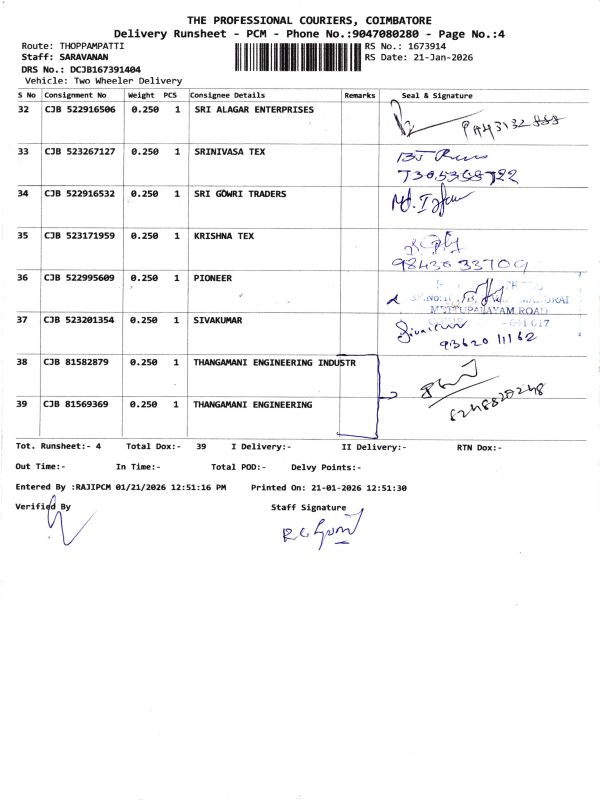 THE PROFESSIONAL COURIERS, COIMBATORE
Delivery Runsheet - PCM - Phone No.:9047080280 - Page No.:4
Route: THOPPAMPATTI RS No.: 1673914
Staff: SARAVANAN RS Date: 21-Jan-2026
DRS No.: DCJB167391404
Vehicle: Two Wheeler Delivery
S No Consignment No Weight PCS Consignee Details Remarks Seal & Signature
32 CJB 522916506 0.250 1 SRI ALAGAR ENTERPRISES
33 CJB 523267127 0.250 1 SRINIVASA TEX
34 CJB 522916532 0.250 1 SRI GOWRI TRADERS
35 CJB 523171959 0.250 1 KRISHNA TEX
9843033709
36 CJB 522995609 0.250 1 PIONEER
METTUPALAYAM ROAD
37 CJB 523201354 0.250 1 SIVAKUMAR
Sivakumar
93620 11162
38 CJB 81582879 0.250 1 THANGAMANI ENGINEERING INDUSTR
39 CJB 81569369 0.250 1 THANGAMANI ENGINEERING
Tot. Runsheet:- 4 Total Dox:- 39 I Delivery:- II Delivery:- RTN Dox:-
Out Time:- In Time:- Total POD:- Delvy Points:-
Entered By :RAJIPCM 01/21/2026 12:51:16 PM Printed On: 21-01-2026 12:51:30
Verified By Staff Signature